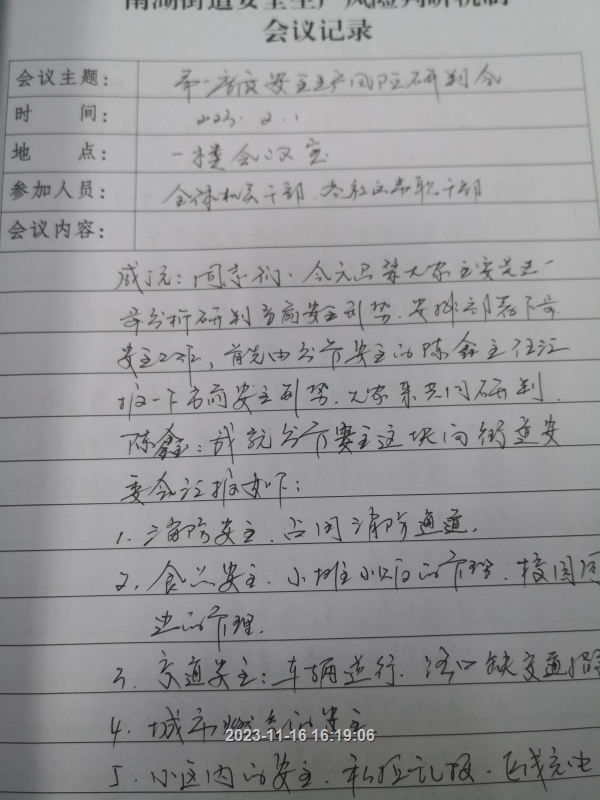 南湖街道安全生产风险研判机制
会议记录
会议主题: 第一季度安全生产风险研判会
时 间: 2023.2.1
地 点: 一楼会议室
参加人员: 全体机关干部、各社区专职干部
会议内容:
同志们,今天召集大家主要是
分析研判当前安全形势,安排部署下
安全工作,首先由分管安全的陈鑫主任汇
报一下当前安全形势,大家来共同研判
陈鑫:我就分管安全这块向街道安
委会汇报如下:
1、消防安全,占用消防通道,
2、食品安全,小摊小贩的管理,校园周
边的管理.
3、交通安全:车辆逆行,路口缺交通指
4、城市燃气的安全
5、小区内的安全,私拉乱接,飞线充电
2023-11-16 16:19:06